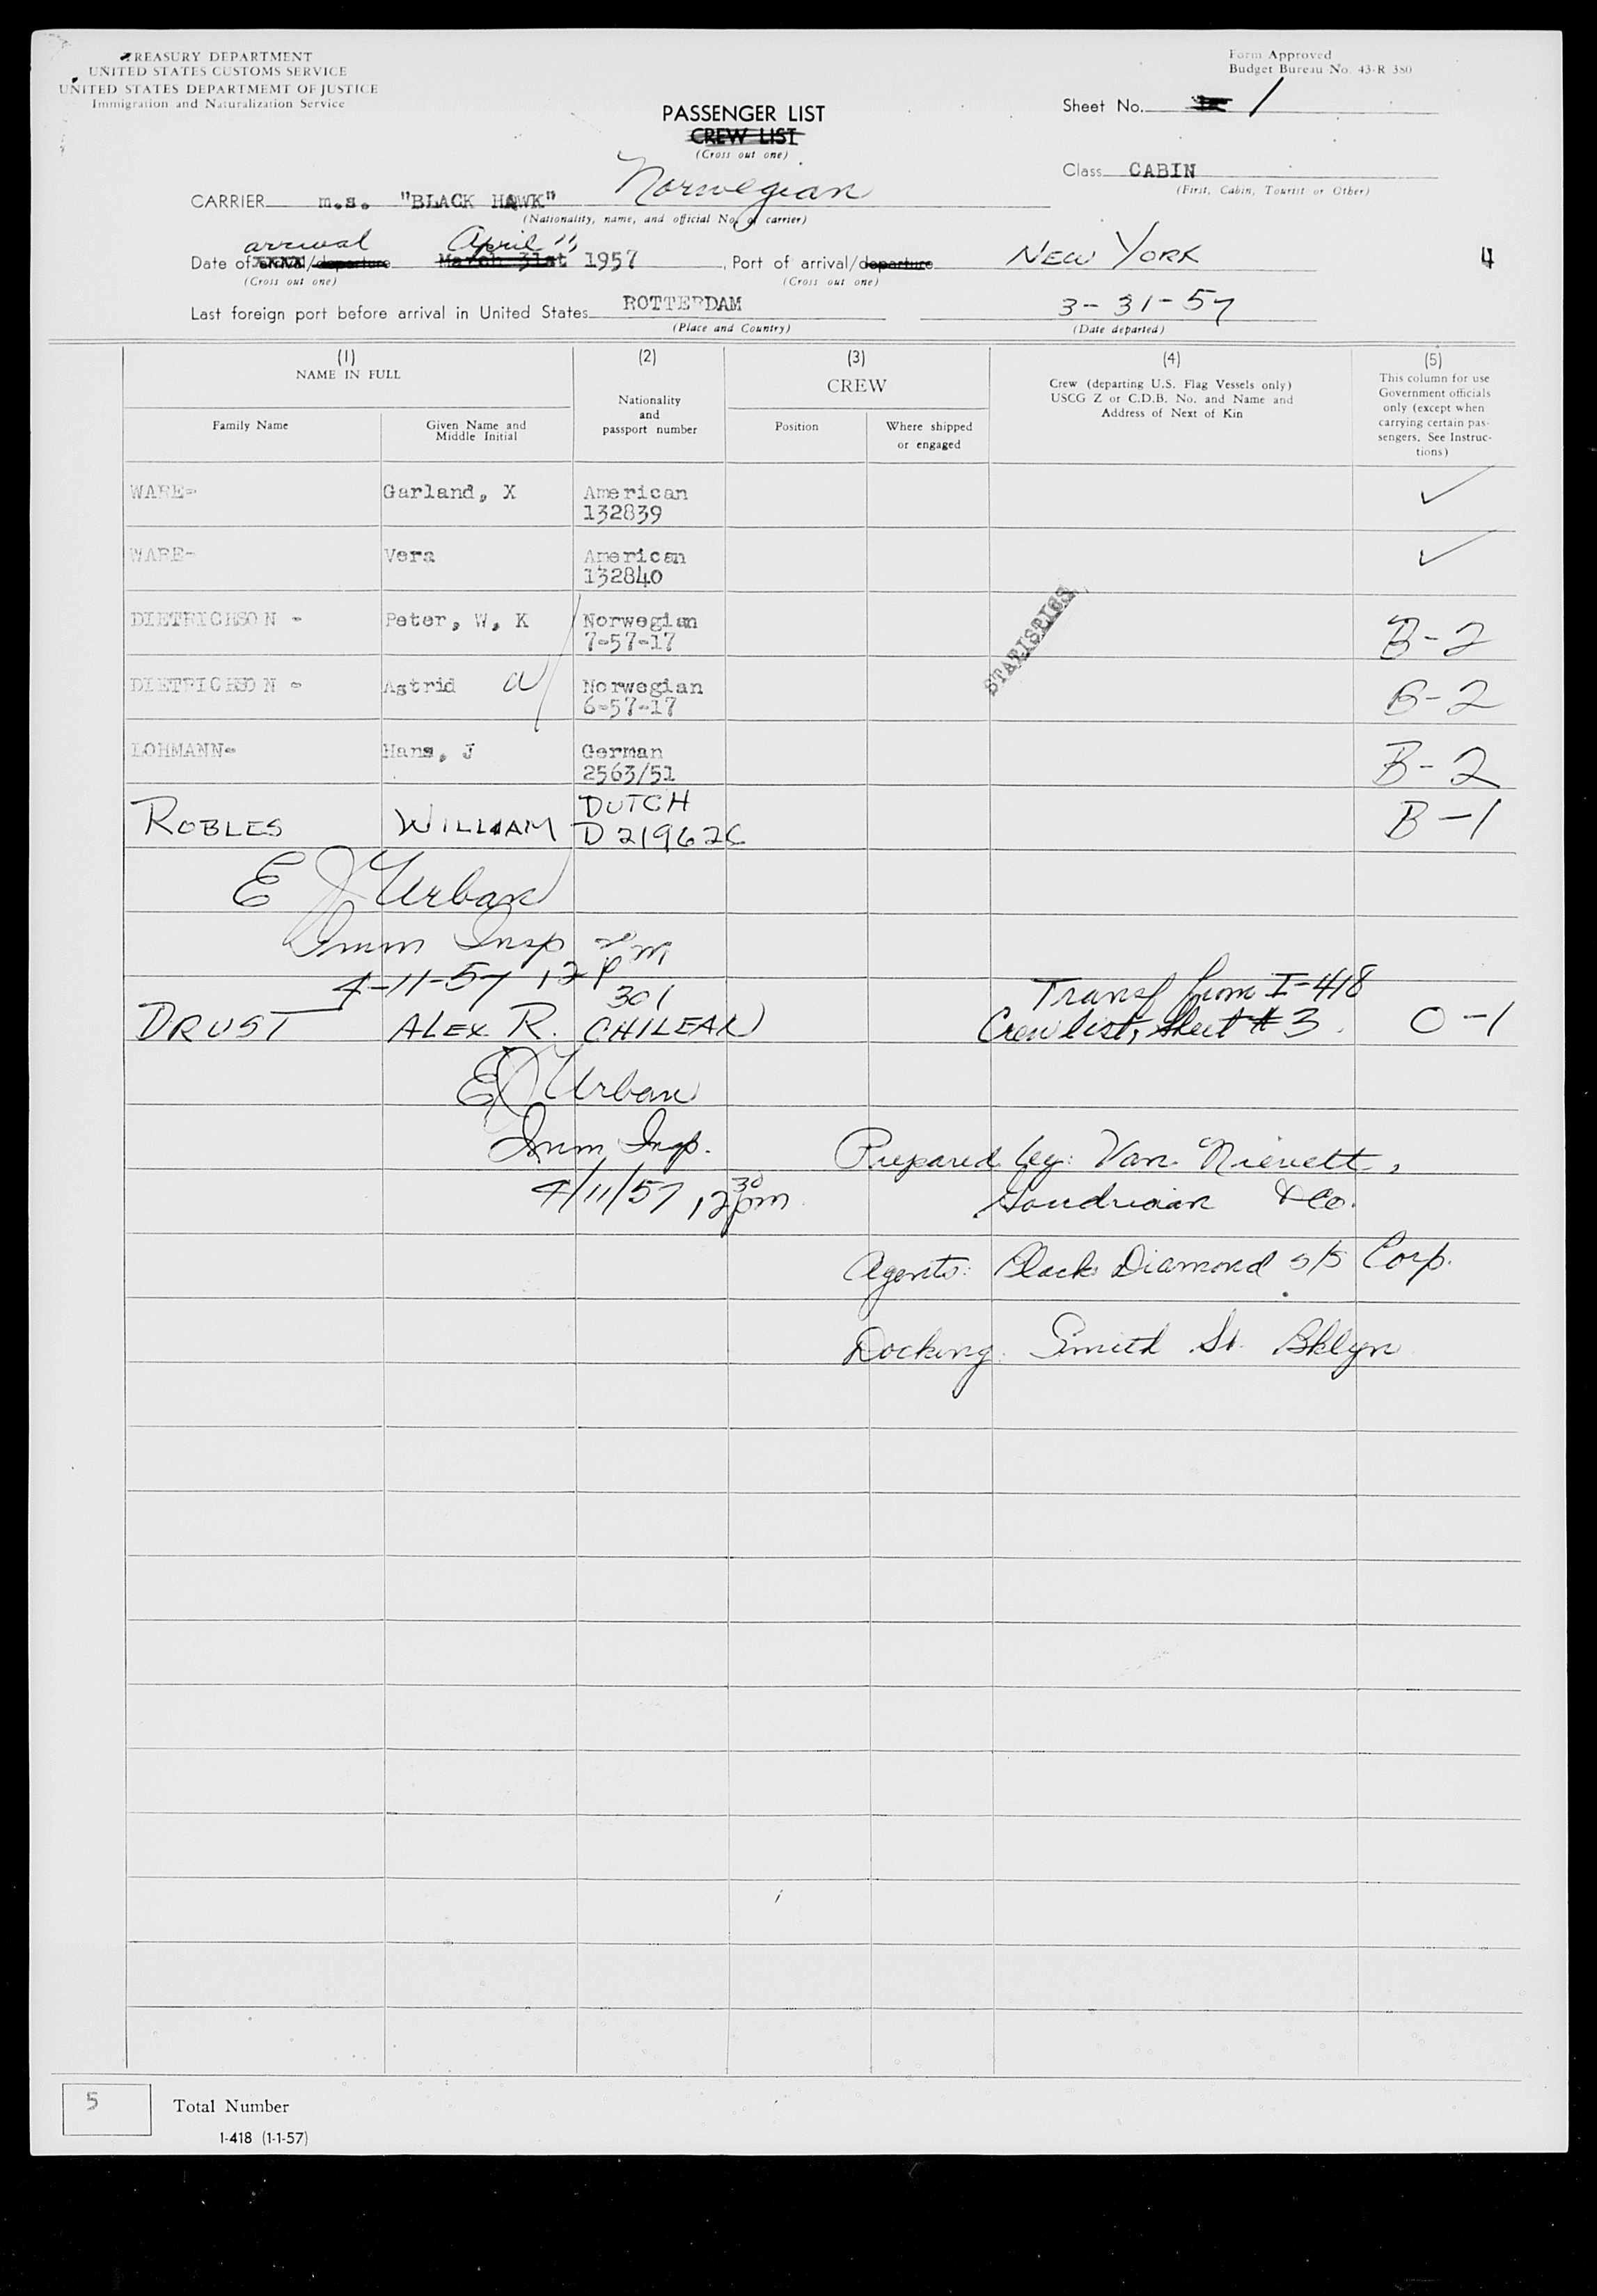 TREASURY DEPARTMENT
UNITED STATES CUSTOMS SERVICE
UNITED STATES DEPARTMEMT OF JUSTICE
Immigration and Naturalization Service
Form Approved
Budget Bureau No. 43-R 380
PASSENGER LIST
CREW LIST
(Cross out one)
Sheet No. 1
Class CABIN
(First, Cabin, Tourist or Other)
CARRIER m.s. "BLACK HAWK" Norwegian
(Nationality, name, and official No. of carrier)
arrival April 11
Date of arrival/departure March 31st 1957, Port of arrival/departure NEW YORK 4
(Cross out one) (Cross out one)
Last foreign port before arrival in United States ROTTERDAM 3-31-57
(Place and Country) (Date departed)
(1) (2) (3) (4) (5)
NAME IN FULL
Family Name
Given Name and
Middle Initial
Nationality
and
passport number
CREW
Position
Where shipped
or engaged
Crew (departing U.S. Flag Vessels only)
USCG Z or C.D.B. No. and Name and
Address of Next of Kin
This column for use
Government officials
only (except when
carrying certain pas-
sengers. See Instruc-
tions)
WARE- Garland, X American
132839
WARE- Vera American
132840
DIETRICHSON - Peter, W, K Norwegian B-2
7-57-17
STATISTICS
DIETRICHSON - Astrid Norwegian B-2
6-57-17
LOHMANN- Hans, J German B-2
2563/51
ROBLES WILLIAM DUTCH B-1
D219626
E J Urban
Imm Insp
4-11-57 12 PM
301
DRUST ALEX R. CHILEAN Transf from I-418 O-1
Crew list, Sheet # 3
E J Urban
Imm Insp.
4/11/57 12 30 pm
Prepared by: Van Nievelt,
Goudriaan & Co.
Agents: Black Diamond S/S Corp.
Docking: Smith St. Bklyn
5 Total Number
I-418 (1-1-57)